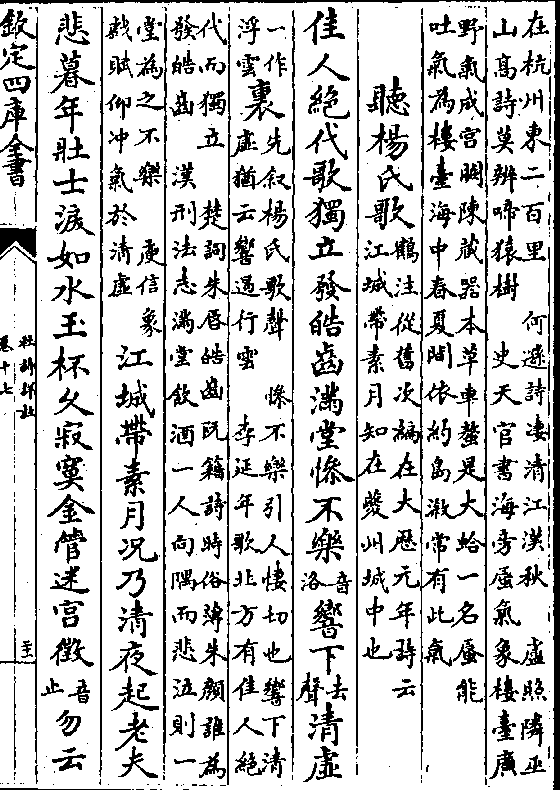 在杭州東二百里　何遜詩凄清江漢秋　盧照隣巫
山高詩莫辨啼猿樹　史天官書海旁蜃氣象樓臺廣
野氣成宮闕陳藏器本草車螯是大蛤一名蜃能
吐氣為樓臺海中春夏間依約島溆常有此氣
聽楊氏歌
鶴注從舊次編在大歷元年詩云
江城帶素月知在夔州城中也
佳人絶代歌獨立發皓齒滿堂慘不樂
音
洛
響下
去
聲
清虛
一作
浮雲
裏
先叙楊氏歌聲　慘不樂引人悽切也響下清
虛猶云響遏行雲　李延年歌北方有佳人絶
代而獨立　楚詞朱唇皓齒阮籍詩時俗薄朱顔誰為
發皓齒　漢刑法志滿堂飲酒一人向隅而悲泣則一
堂為之不樂　庾信象
戲賦仰冲氣於清虛
江城帶素月况乃清夜起老夫
悲暮年壯士淚如水玉杯久寂寞金管迷宫徵
音
止
勿云
欽定四庫全書
杜詩詳註
卷十七